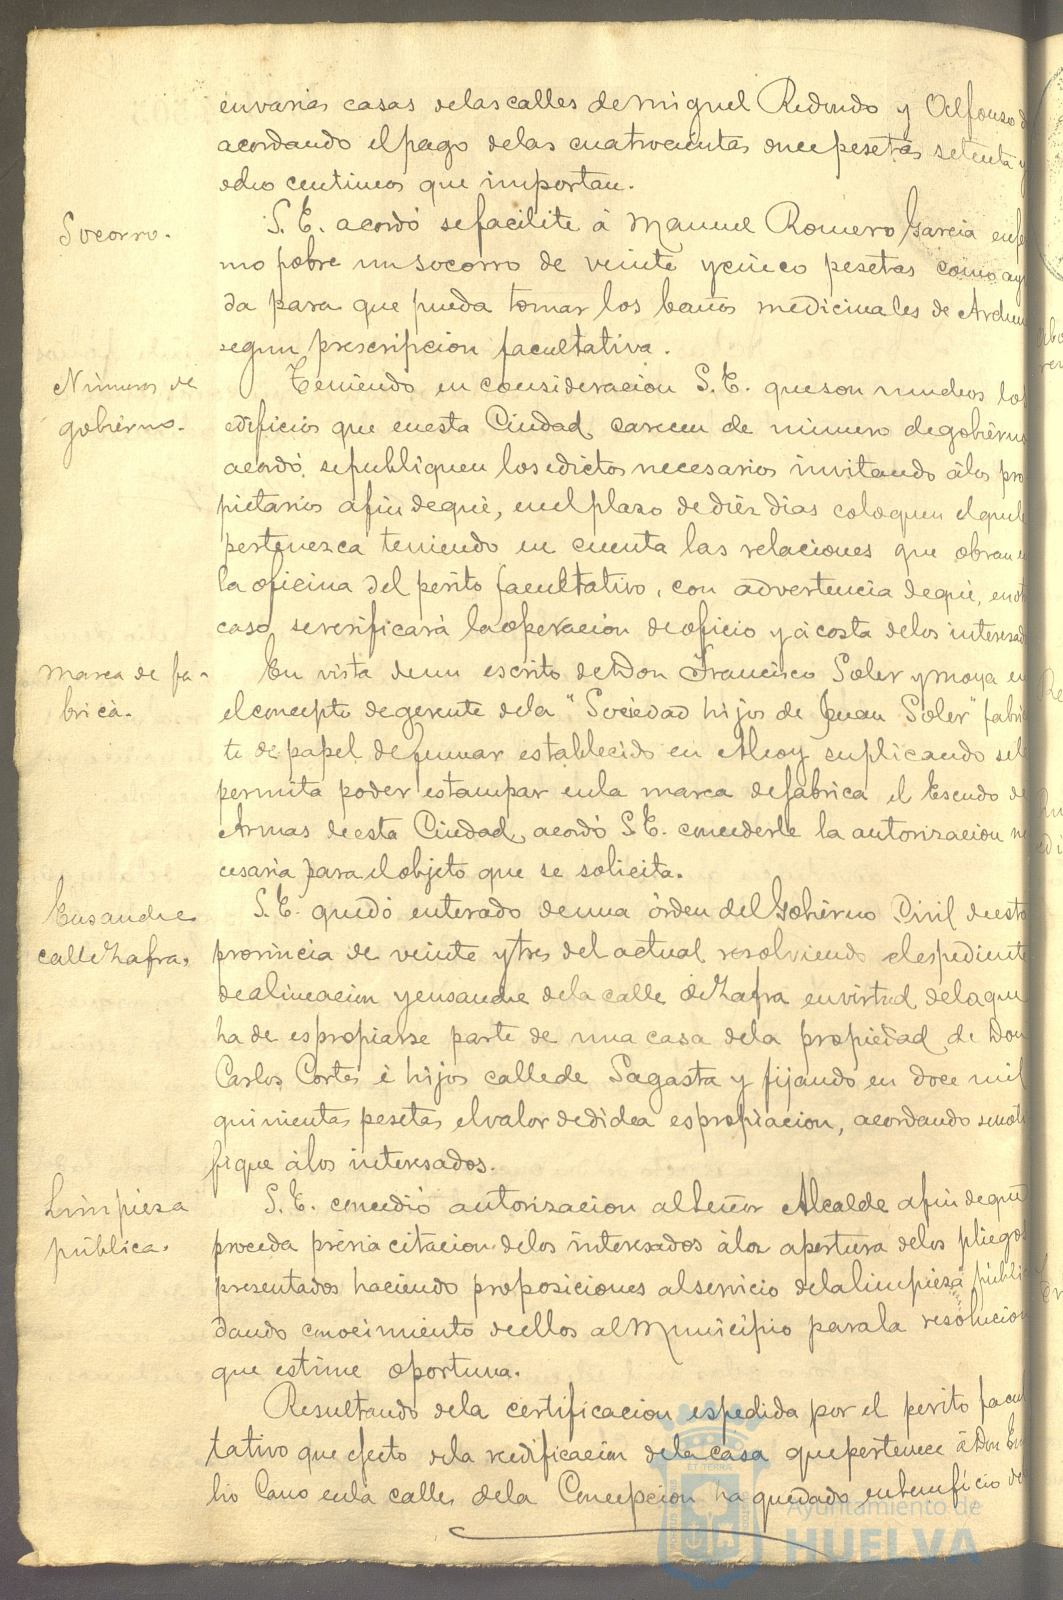 en varias casas de las calles de Miguel Redondo y Alfonso
acordando el pago de las cuatrocientas once pesetas setenta y
ocho centimos que importan.
Socorro.
S. E. acordó se facilite á Manuel Romero Garcia enfer
mo pobre un socorro de veinte y cinco pesetas como ayu
da para que pueda tomar los baños medicinales de
segun prescripcion facultativa.
Números de
gobiérno.
Teniendo en consideracion S. E. que son muchos los
edificios que en esta Ciudad carecen de número de gobiérno
acordó, se publiquen los edictos necesarios invitando á los pro
pietarios a fin de que, en el plazo de diéz dias coloquen el que le
pertenezca teniendo en cuenta las relaciones que obran en
la oficina del perito facultativo, con advertencia de que, en otro
caso, se verificará la operacion de oficio y á costa de los interesad
Marca de fa-
brica.
En vista de un escrito de Don Francisco Soler y Moya en
el concepto de gerente de la "Sociedad hijos de Juan Soler" fabri
te de papel de fumar establecido en Alcoy suplicando se le
permita poder estampar en la marca de fábrica el Escudo de
Armas de esta Ciudad, acordó S. E. concederle la autorizacion ne
cesaria para el objeto que se solicita.
Ensanche
calle Zafra.
S. E. quedó enterado de una órden del Gobiérno Civil de esta
provincia de veinte y tres del actual resolviendo el espediente
de alineacion y ensanche de la calle de Zafra en virtud de la que
ha de espropiarse parte de una casa de la propiedad de Don
Carlos Cortes é hijos calle de Sagasta y fijando en doce mil
quinientas pesetas el valor de dicha espropiacion, acordando se noti
fique á los interesados.
Limpieza
pública.
S. E. concedió autorizacion al Señor Alcalde a fin de que
proceda prévia citacion de los interesados á la apertura de los pliegos
presentados haciendo proposiciones al servicio de la limpieza públi
dando conocimiento de ellos al Municipio para la resolucion
que estime oportuna.
Resultando de la certificacion espedida por el perito facul
tativo que efecto de la redificacion de la casa que pertenece á Don Emi
lio Cano en la calle de la Concepcion ha quedado en beneficio de
Ayuntamiento de
HUELVA